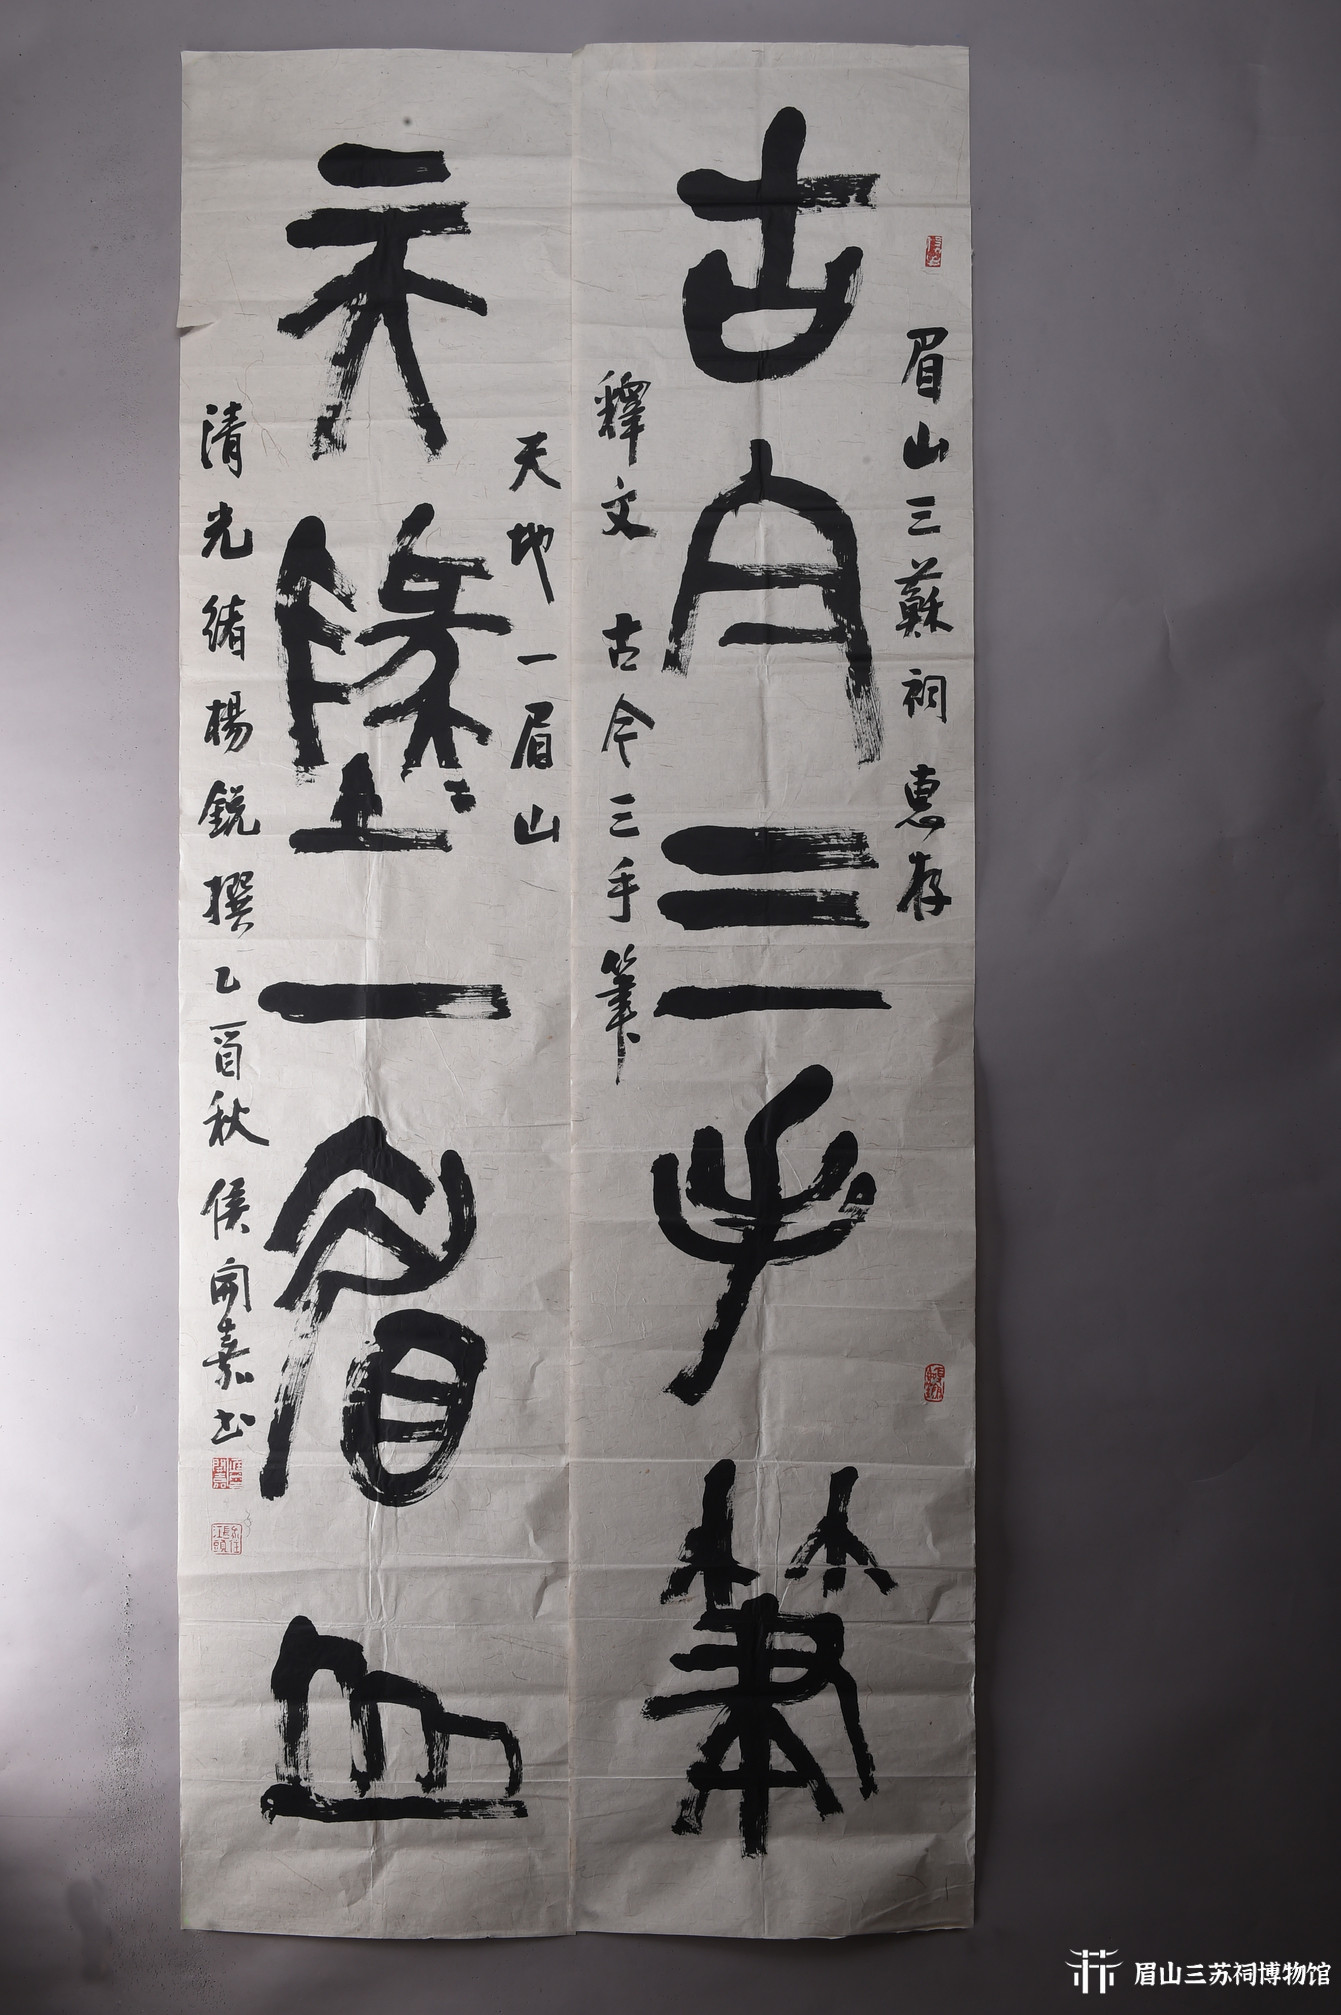 眉山三蘇祠 惠存
古今三手筆
釋文 古今三手筆
天地一眉山
天墬一眉山
清光緒楊銳撰 乙酉秋 侯開嘉書
眉山三苏祠博物馆